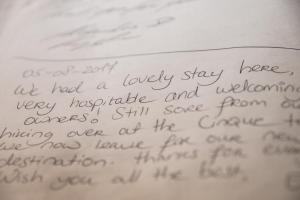 05-08-2017
We had a lovely stay here,
very hospitable and welcoming
owners! Still sore from
hiking over at the Cinque
we now leave for our new
destination. Thanks for
Wish you all the best.